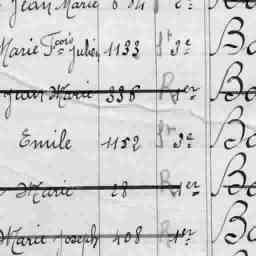 Jean Marie 834 2e
Marie Fcois Julien 1133 St 3e Bo
Jean Marie 338 R 1er Bo
Emile 1152 St 3e Bo
Marie 28 1er Bo
Marie Joseph 408 R 1er Bo